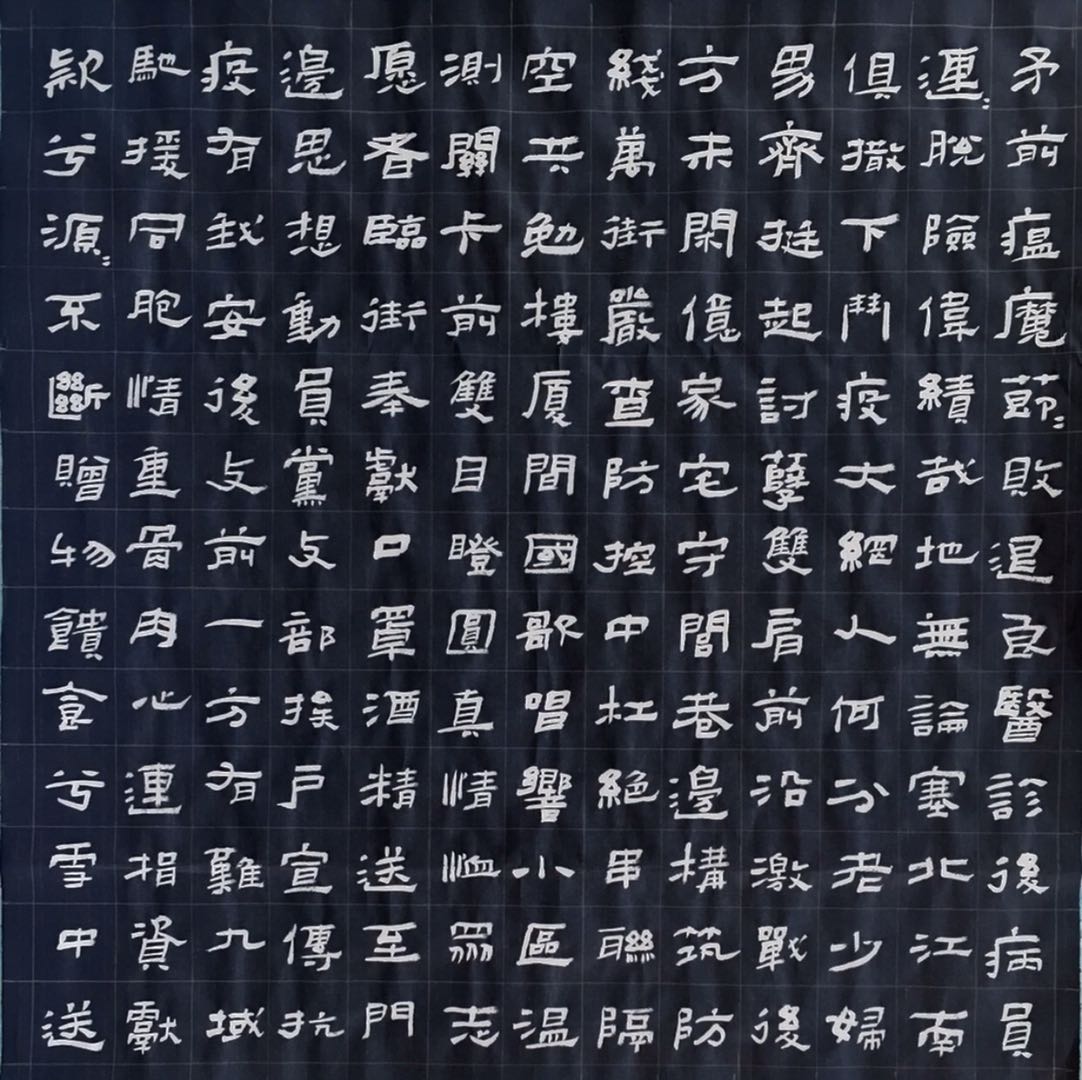 矛前瘟魔節〻敗退良醫診後病員
連〻脫險偉績哉地無論塞北江南
俱撒下鬥疫大網人何分老少婦
男齊挺起討孽雙肩前沿激戰後
方未閑億家宅守閭巷邊構筑防
綫萬街嚴查防控中杜絕串聯隔
空共勉樓厦間國歌唱響小區温
測關卡前雙目瞪圓真情恤志
愿者臨街奉獻口罩酒精送至門
邊思想動員黨支部挨戶宣傳抗
疫有我安後支前一方有難九域
馳援同胞情重骨肉心連捐資獻
款兮源〻不斷贈物饋食兮雪中送